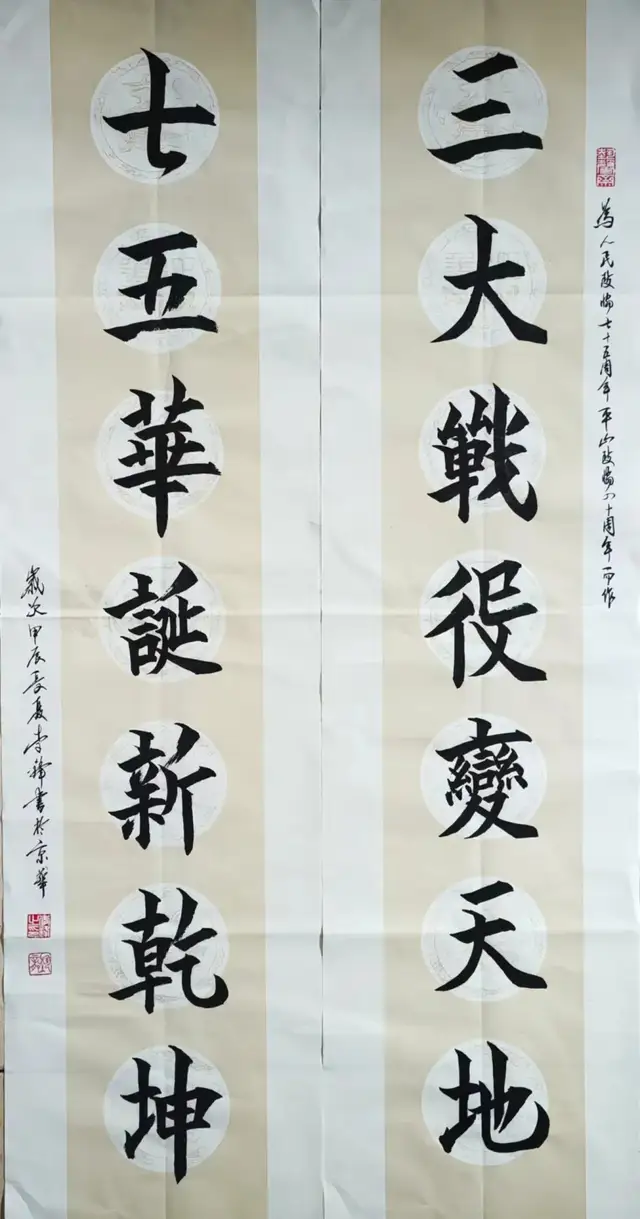 为人民政協七十五周年平山政協八十周年而作
三大戰役變天地
七五華誕新乾坤
歲次甲辰長夏李 書於京華